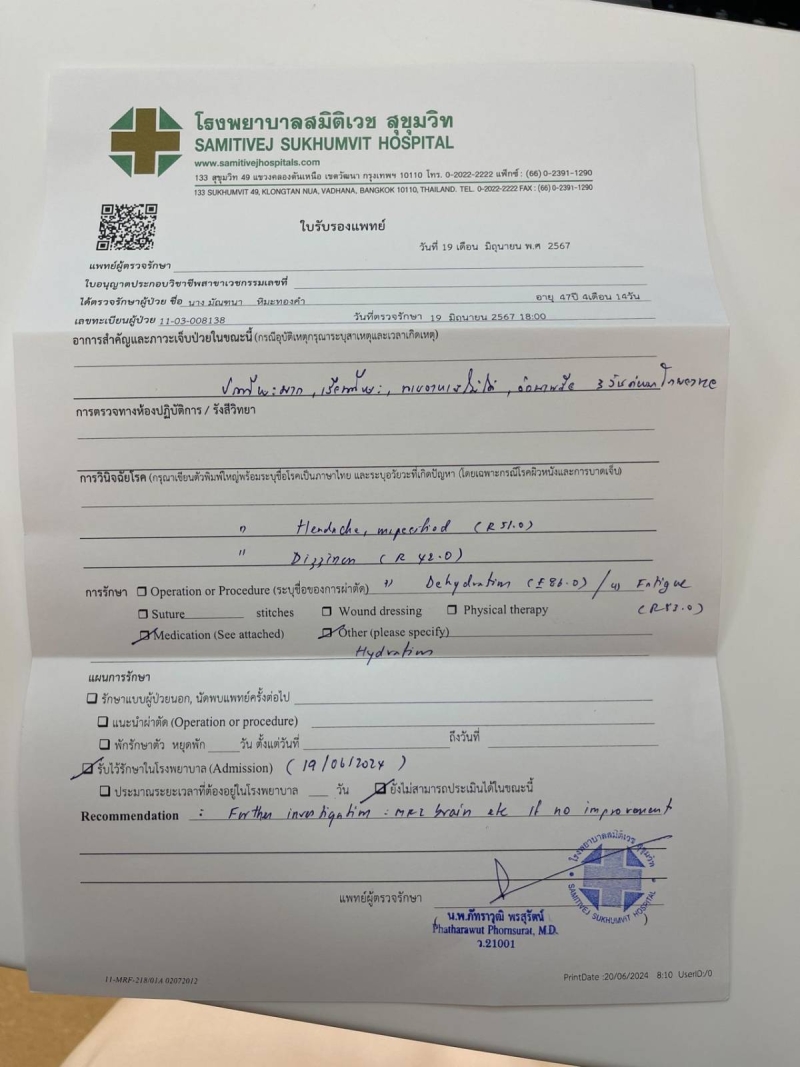 โรงพยาบาลสมิติเวช สุขุมวิท
SAMITIVEJ SUKHUMVIT HOSPITAL
www.samitivejhospitals.com
133 สุขุมวิท 49 แขวงคลองตันเหนือ เขตวัฒนา กรุงเทพฯ 10110 โทร. 0-2022-2222 แฟ็กซ์ : (66) 0-2391-1290
133 SUKHUMVIT 49, KLONGTAN NUA, VADHANA, BANGKOK 10110, THAILAND. TEL. 0-2022-2222 FAX : (66) 0-2391-1290
ใบรับรองแพทย์
วันที่ 19 เดือน มิถุนายน พ.ศ 2567
แพทย์ผู้ตรวจรักษา
ใบอนุญาตประกอบวิชาชีพสาขาเวชกรรมเลขที่
ได้ตรวจรักษาผู้ป่วย ชื่อ นาง มัณฑนา หิมะทองคำ อายุ 47ปี 4เดือน 14วัน
เลขทะเบียนผู้ป่วย 11-03-008138 วันที่ตรวจรักษา 19 มิถุนายน 2567 18:00
อาการสำคัญและภาวะเจ็บป่วยในขณะนี้ (กรณีอุบัติเหตุกรุณาระบุสาเหตุและเวลาเกิดเหตุ)
ปวดศีรษะมาก, เวียนศีรษะ, 3 วันก่อนมาโรงพยาบาล
การตรวจทางห้องปฏิบัติการ / รังสีวิทยา
การวินิจฉัยโรค (กรุณาเขียนตัวพิมพ์ใหญ่พร้อมระบุชื่อโรคเป็นภาษาไทย และระบุอวัยวะที่เกิดปัญหา (โดยเฉพาะกรณีโรคผิวหนังและการบาดเจ็บ)
Headache, unspecified (R51.0)
Dizziness (R 42.0)
การรักษา Operation or Procedure (ระบุชื่อของการผ่าตัด) Dehydration (E86.0) / 4) Fatigue
Suture stitches Wound dressing Physical therapy (R53.0)
Medication (See attached) Other (please specify)
Hydration
แผนการรักษา
รักษาแบบผู้ป่วยนอก, นัดพบแพทย์ครั้งต่อไป
แนะนำผ่าตัด (Operation or procedure)
พักรักษาตัว หยุดพัก วัน ตั้งแต่วันที่ ถึงวันที่
รับไว้รักษาในโรงพยาบาล (Admission) (19/06/2024)
ประมาณระยะเวลาที่ต้องอยู่ในโรงพยาบาล วัน ยังไม่สามารถประเมินได้ในขณะนี้
Recommendation : Further investigation : MRI brain etc if no improvement
แพทย์ผู้ตรวจรักษา
โรงพยาบาลสมิติเวช สุขุมวิท
SAMITIVEJ SUKHUMVIT HOSPITAL
น.พ.ภัทราวุฒิ พรสุรัตน์
Phatharawut Phornsurat, M.D.
ว.21001
11-MRF-218/01A 02072012
PrintDate :20/06/2024 8:10 UserID:/0